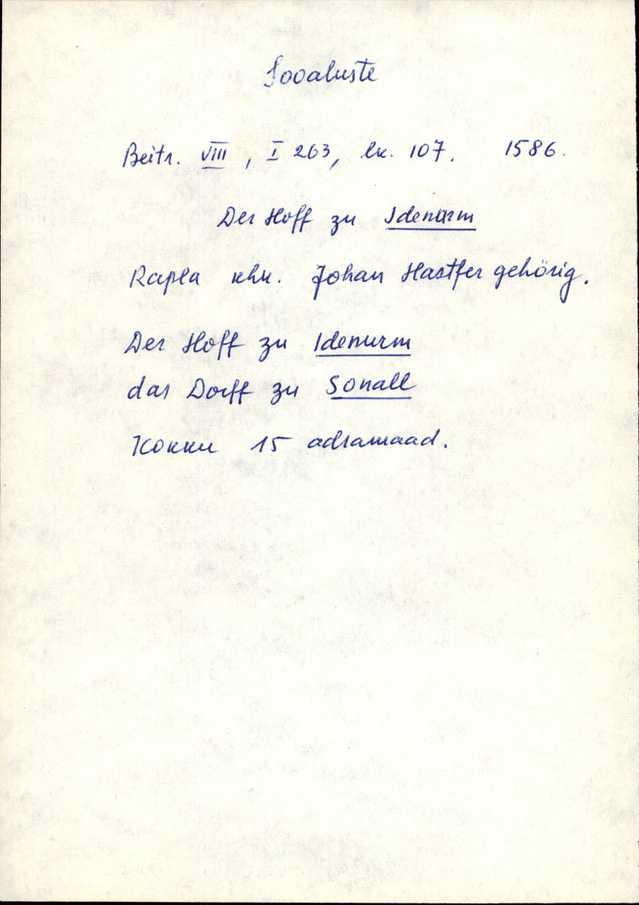 Sooaluste
Beitr. VIII, I 263, lk. 107. 1586.
Der Hoff zu Idenurm
Rapla khk. Johan Hastfer gehörig.
Der Hoff zu Idenurm
das Dorff zu Sonall
Kokku 15 adramaad.